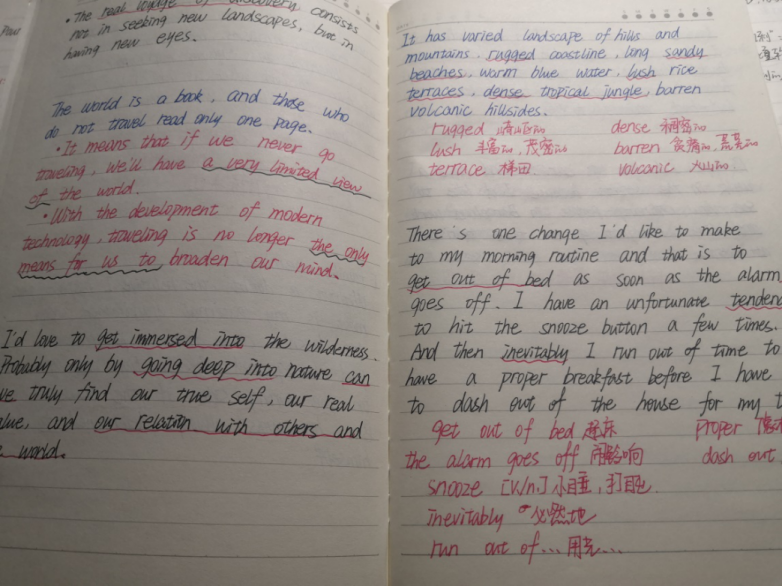 • The real voyage of discovery consists
not in seeking new landscapes, but in
having new eyes.
The world is a book, and those who
do not travel read only one page.
• It means that if we never go
traveling, we'll have a very limited view
of the world.
• With the development of modern
technology, traveling is no longer the only
means for us to broaden our mind.
I'd love to get immersed into the wilderness.
Probably only by going deep into nature can
we truly find our true self, our real
value, and our relation with others and
world.
It has varied landscape of hills and
mountains, rugged coastline, long sandy
beaches, warm blue water, lush rice
terraces, dense tropical jungle, barren
volcanic hillsides.
rugged dense 稠密的
lush 丰富的, 茂密的 barren 贫瘠的, 荒芜的
terrace 梯田 volcanic 火山的
There's one change I'd like to make
to my morning routine and that is to
get out of bed as soon as the alarm
goes off. I have an unfortunate tendenc
to hit the snooze button a few times.
And then inevitably I run out of time to
have a proper breakfast before I have
to dash out of the house for my t
get out of bed 起床 proper
the alarm goes off 闹铃响 dash out
snooze [v/n.] 小睡, 打盹
inevitably 必然地
run out of... 用完...